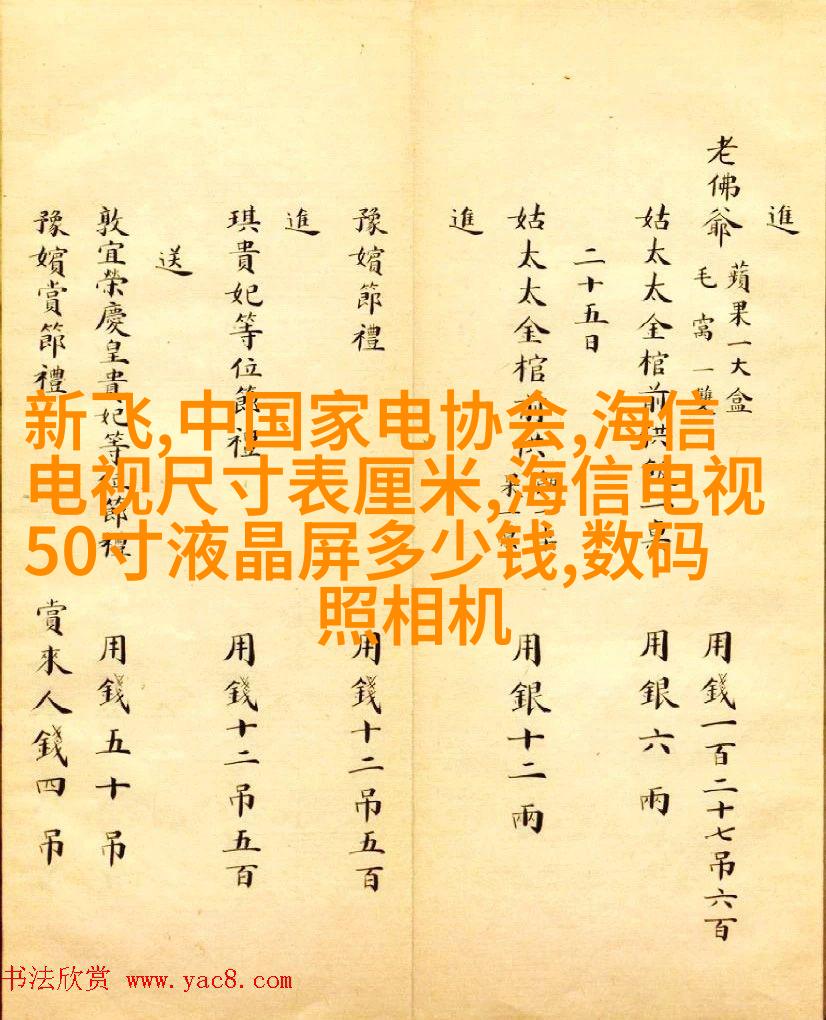 進
老佛爺 蘋果一大盒 毛窩一雙 用錢一百二十七吊六百
姑太太金棺前供 用銀六兩
二十五日
姑太太金棺前供 用銀十二兩
進
豫嬪節禮 用錢十二吊五百
進
琪貴妃等位節禮 用錢十二吊五百
送
敦宜榮慶皇貴妃等位節禮 用錢五十吊
豫嬪賞節禮 賞來人錢四吊
新飞,中国家电协会,海信
电视尺寸表厘米,海信电视
50寸液晶屏多少钱,数码
照相机
书法欣赏 www.yac8.com